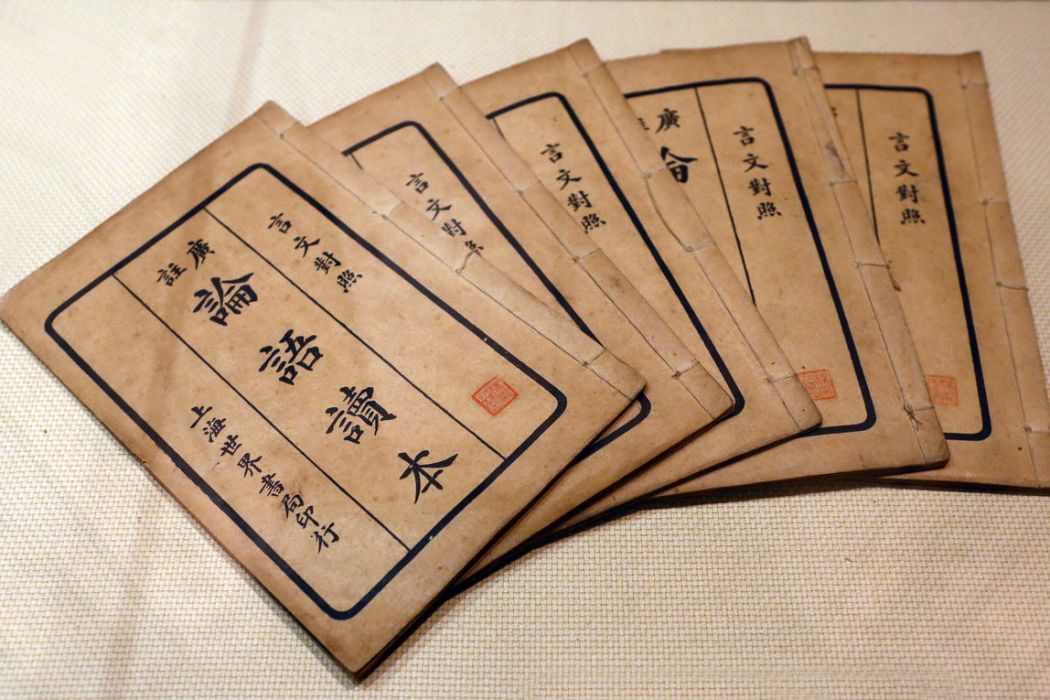 言文對照
廣註
論語讀本
上海世界書局印行
言文對照
言文對照
言文對照
廣
言文對照